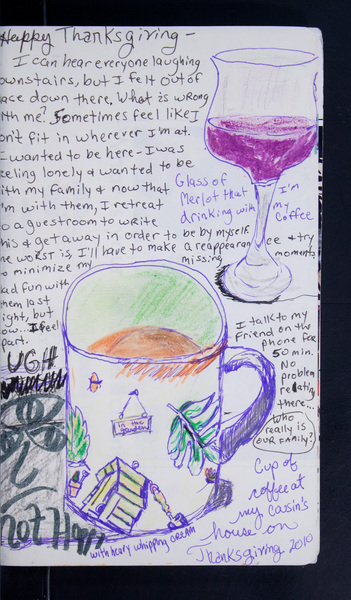 Happy Thanksgiving -
I can hear everyone laughing
ownstairs, but I felt out of
ace down there. What is wrong
th me? Sometimes I feel like I
on't fit in wherever I'm at.
I wanted to be here - I was
eling lonely & wanted to be
ith my family & now that
'm with them, I retreat
o a guestroom to write
his & get away in order to be by myself.
he worst is, I'll have to make a reappearance & try
o minimize my missing moments
ad fun with
hem last
ight, but
ow... I feel
part.
UGH
Glass of
Merlot that I'm
drinking with my
Coffee
I talk to my
Friend on the
phone for
50 min.
No
problem
relating
there...
Who
really is
OUR FAMILY?
in the
garden
not Ha
with heavy whipping cream
Cup of
coffee at
my cousin's
house on
Thanksgiving 2010